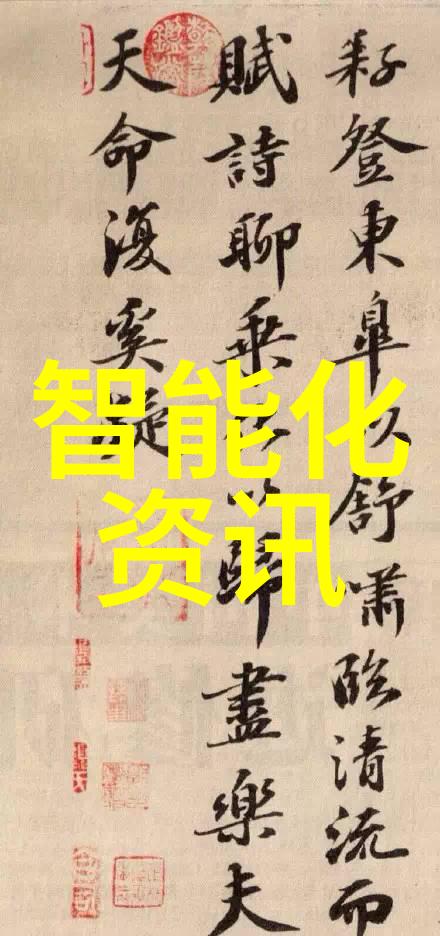 耔登東皋以舒嘯臨清流而
賦詩聊乗化以歸盡樂夫
天命復奚疑
智能化
资讯